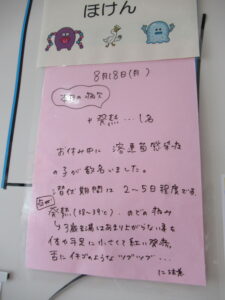 ほけん
8月18日(月)
今日の病欠
+ 発熱…1名
お休み中に 溶連菌感染症
の子が数名いました。
潜伏期間は 2～5日程度です。
発熱(38～39℃)、のどの痛み
3歳未満はあまり上がらない事も
体や手足に小さくて紅い発疹、
舌にイチゴのようなツブツブ…